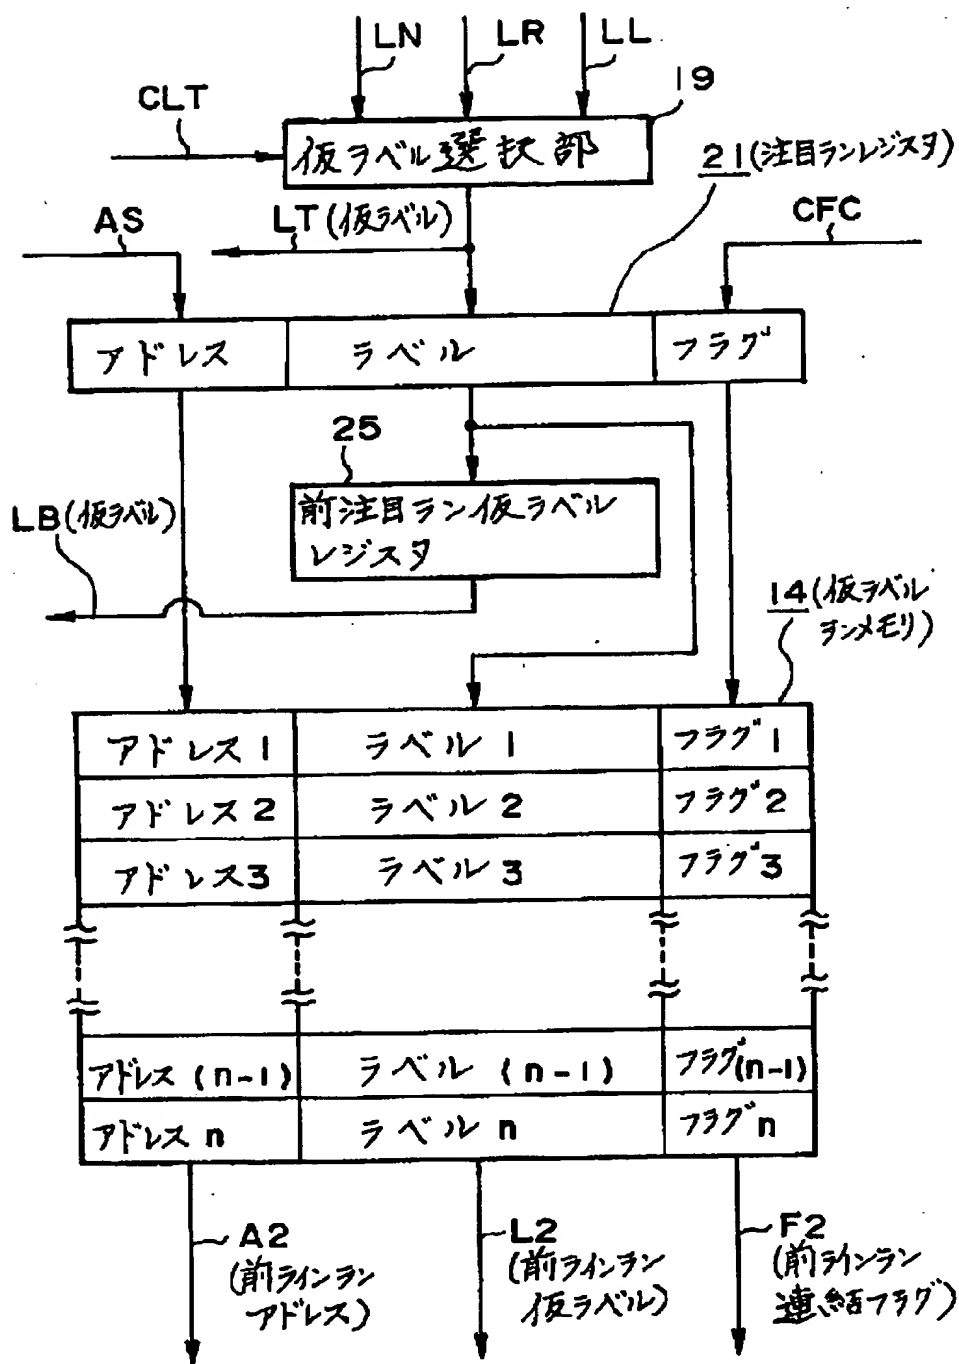 LN
LR
LL
CLT
19
仮ラベル選択部
21(注目ランレジスタ)
AS
LT(仮ラベル)
CFC
アドレス
ラベル
フラグ
25
前注目ラン仮ラベル
レジスタ
LB(仮ラベル)
14(仮ラベル
ランメモリ)
アドレス1
ラベル1
フラグ1
アドレス2
ラベル2
フラグ2
アドレス3
ラベル3
フラグ3
アドレス(n-1)
ラベル(n-1)
フラグ(n-1)
アドレスn
ラベルn
フラグn
A2
(前ラインラン
アドレス)
L2
(前ラインラン
仮ラベル)
F2
(前ラインラン
連結フラグ)